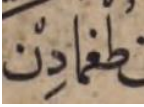 طغمادِنْ